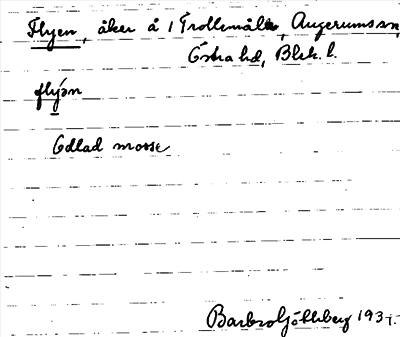 Flyen, åker å 1 Trollemåla, Augerums sn,
Östra hd, Blek. l.
flýən
Odlad mosse
Barbro